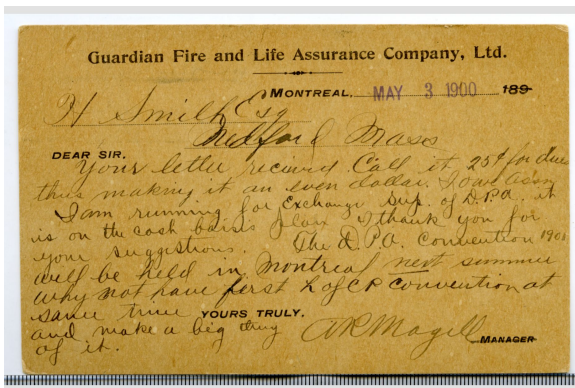 Guardian Fire and Life Assurance Company, Ltd.
MONTREAL, MAY 3 1900 189
H Smith Esq
Medford Mass
DEAR SIR,
Your letter received. Call it 25¢ for dues
thus making it an even dollar.
I am running for Exchange Sup. of D.P.A. it
is on the cash basis plan I thank you for
your suggestions. The D.P.A. Convention 1901
will be held in Montreal next summer
why not have first L of CP convention at
same time YOURS TRULY,
and make a big thing
of it. A R Magill MANAGER